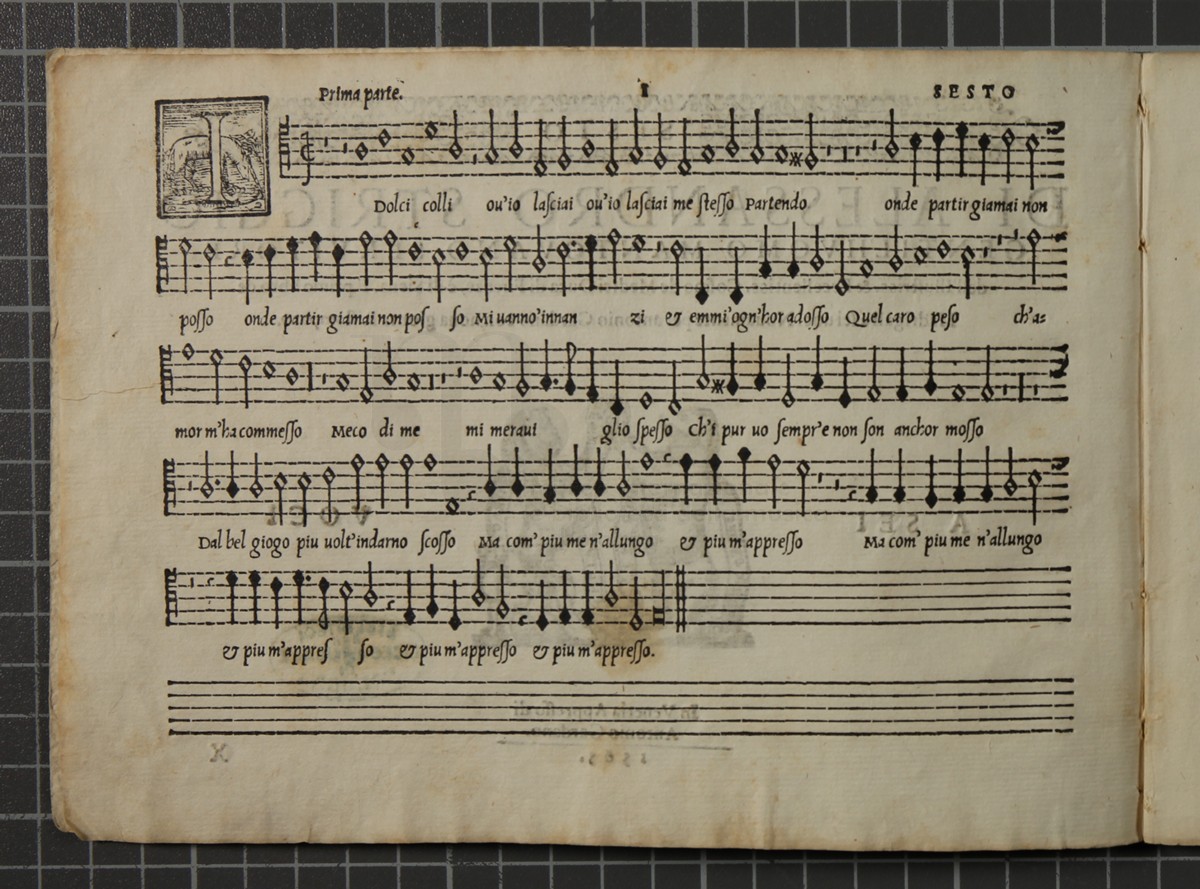 Prima parte. 1 SESTO
I Dolci colli ou'io lasciai ou'io lasciai me stesso Partendo onde partir giamai non
posso onde partir giamai non pos so Mi uanno'innan zi & emmi'ogn'hor adosso Quel caro peso ch'a=
mor m'ha commesso Meco di me mi meraui glio spesso Ch'i pur uo sempr'e non son anchor mosso
Dal bel giogo piu uolt'indarno scosso Ma com' piu me n'allungo & piu m'appresso Ma com' piu me n'allungo
& piu m'appres so & piu m'appresso & piu m'appresso.